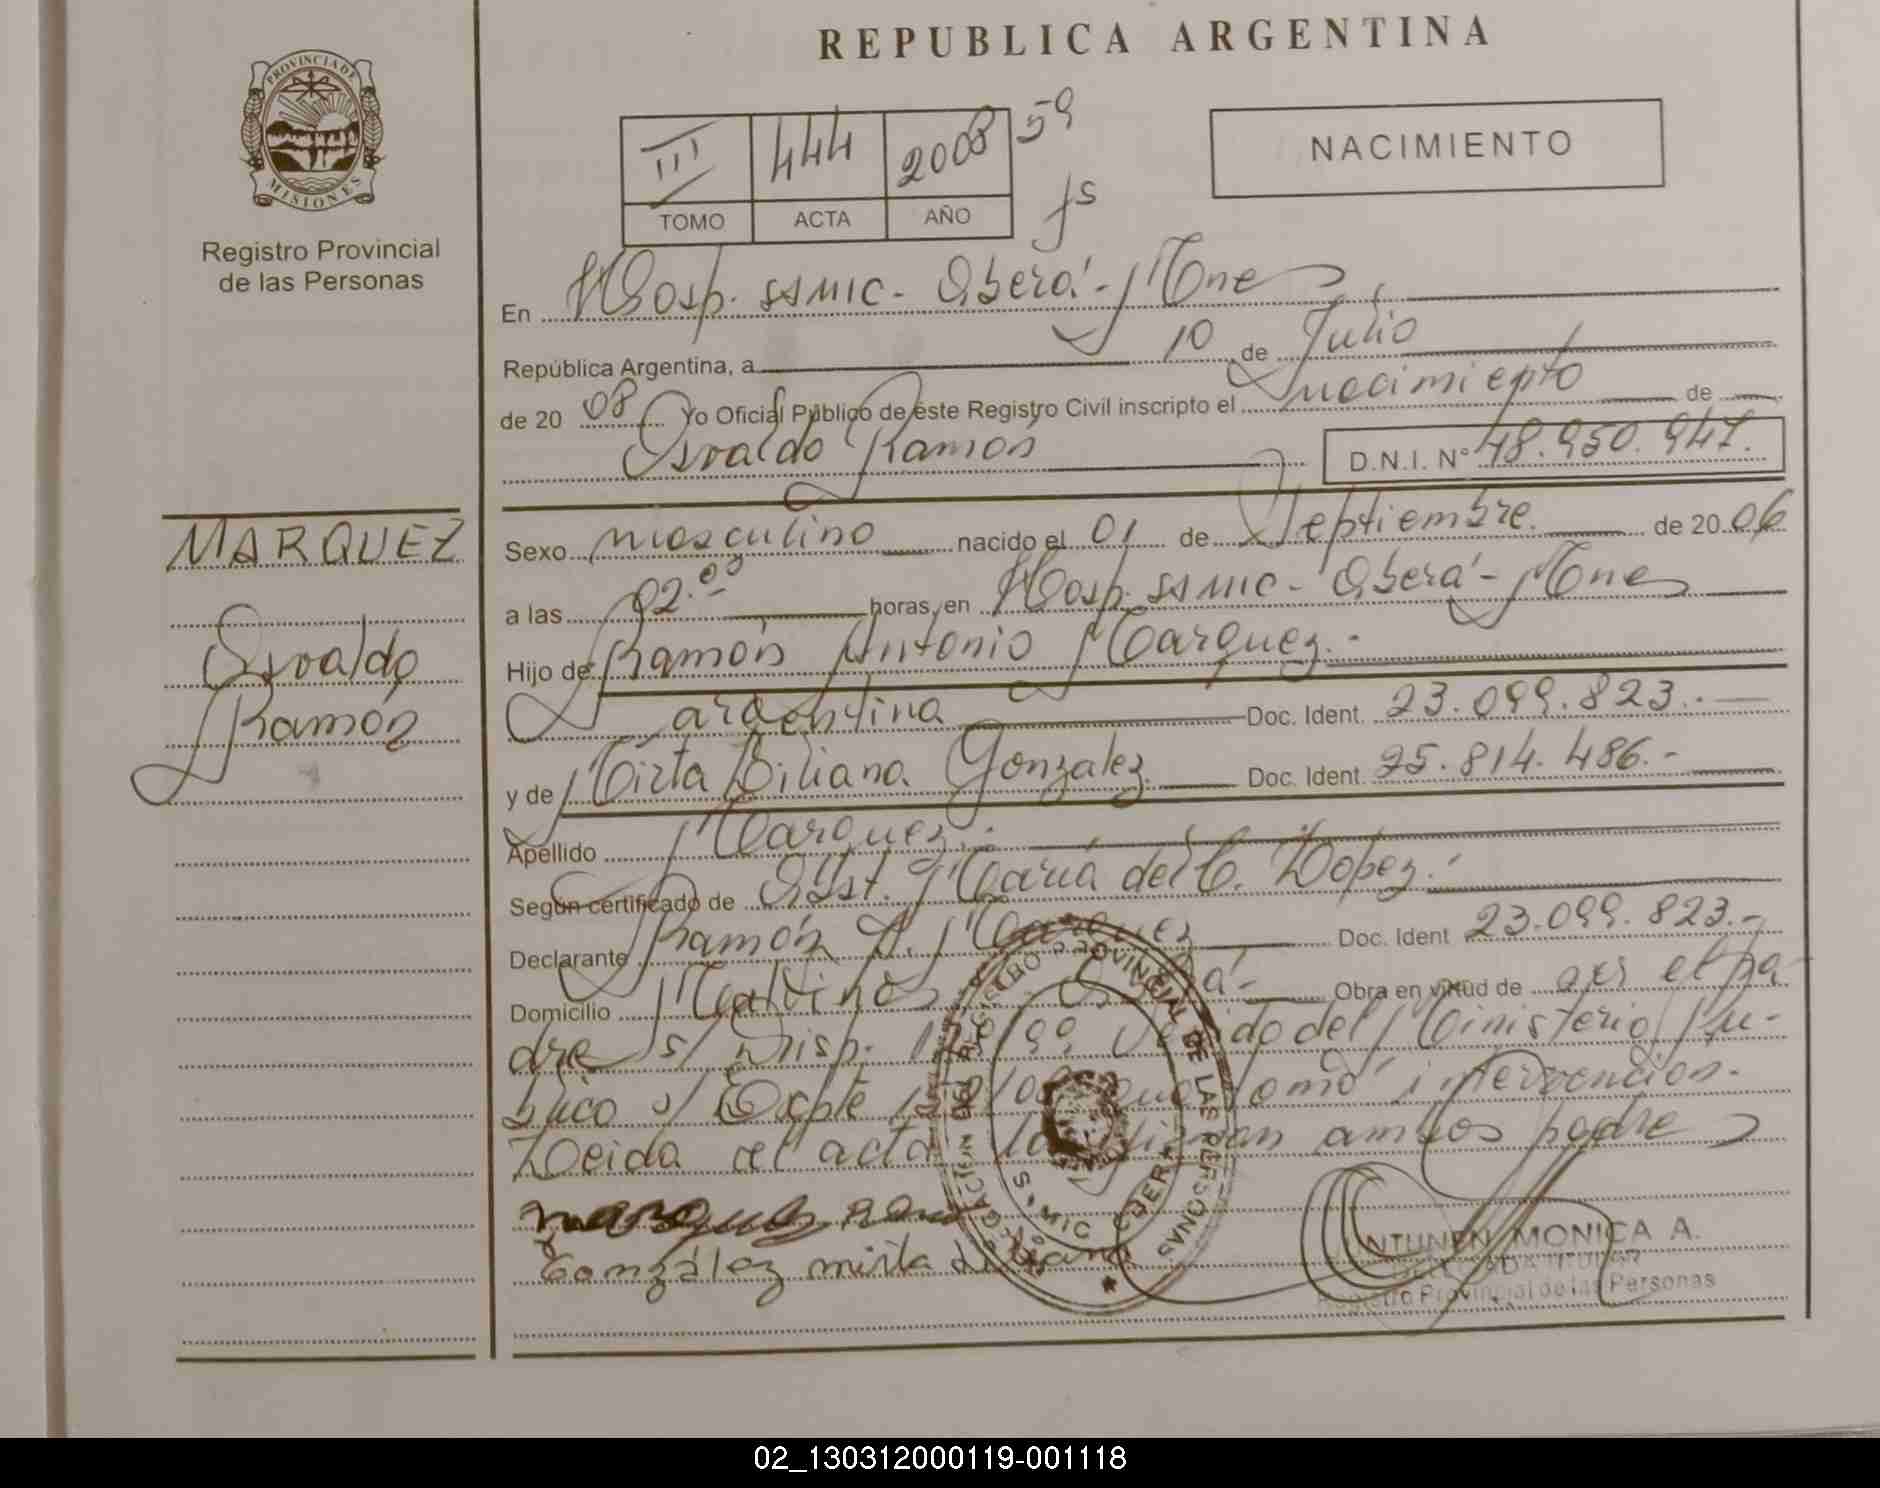 REPUBLICA ARGENTINA
PROVINCIA DE
MISIONES
Registro Provincial
de las Personas
III 444 2008 59
TOMO ACTA AÑO fs
NACIMIENTO
En Hosp. SAMIC - Oberá - Mnes
República Argentina, a 10 de Julio
de 20 08 Yo Oficial Público de este Registro Civil inscripto el nacimiento de
Osvaldo Ramón D.N.I. Nº 48.950.947.
MARQUEZ
Osvaldo
Ramón
Sexo masculino nacido el 01 de Septiembre de 20 06
a las 02.00 horas, en Hosp. SAMIC - Oberá - Mnes
Hijo de Ramón Antonio Marquez.-
argentina Doc. Ident. 23.099.823.-
y de Mirta Liliana Gonzalez Doc. Ident. 25.814.486.-
Apellido Marquez.-
Según certificado de Obst. María del C. Lopez.-
Declarante Ramón A. Marquez Doc. Ident 23.099.823.-
Domicilio Malvinas Oberá - Obra en virtud de ser el pa-
dre s/ Disp. do del Ministerio Pu-
blico s/ Expte que tomó intervención.
Leida el acta la firman ambos padres
marquez
González mirta Liliana
REGISTRO PROVINCIAL DE LAS PERSONAS
MONICA A.
Registro Provincial de las Personas
02_130312000119-001118